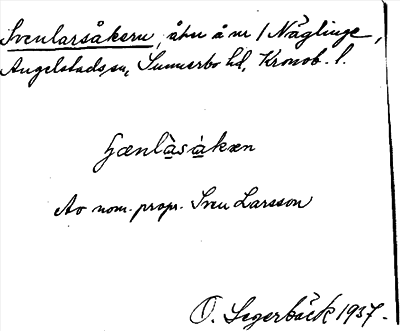 Svenlarsåkern, åker å nr 1 Näglinge,
Angelstads sn, Sunnerbo hd, Kronob. l.
Av nom. propr. Sven Larsson
O. Segerbäck 1937.